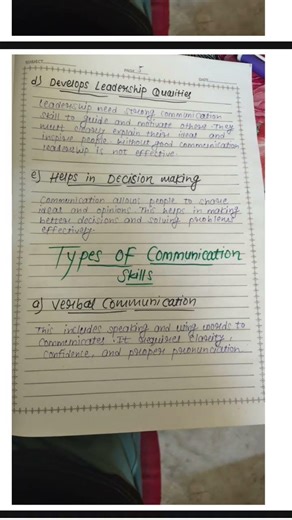 SUBJECT
PAGE 5
DATE
d) Develops Leadership Qualities
Leadership need strong communication
skill to guide and motivate others. They
must clearly explain their ideas and
inspire people. without good communication
leadership is not effective.
e) Helps in Decision making
Communication allows people to share
ideas and opinions. This helps in making
better decisions and solving problems
effectively.
Types of Communication
Skills
a) Verbal Communication
This includes speaking and using words to
Communicates. It requires clarity,
confidence, and proper pronunciation.